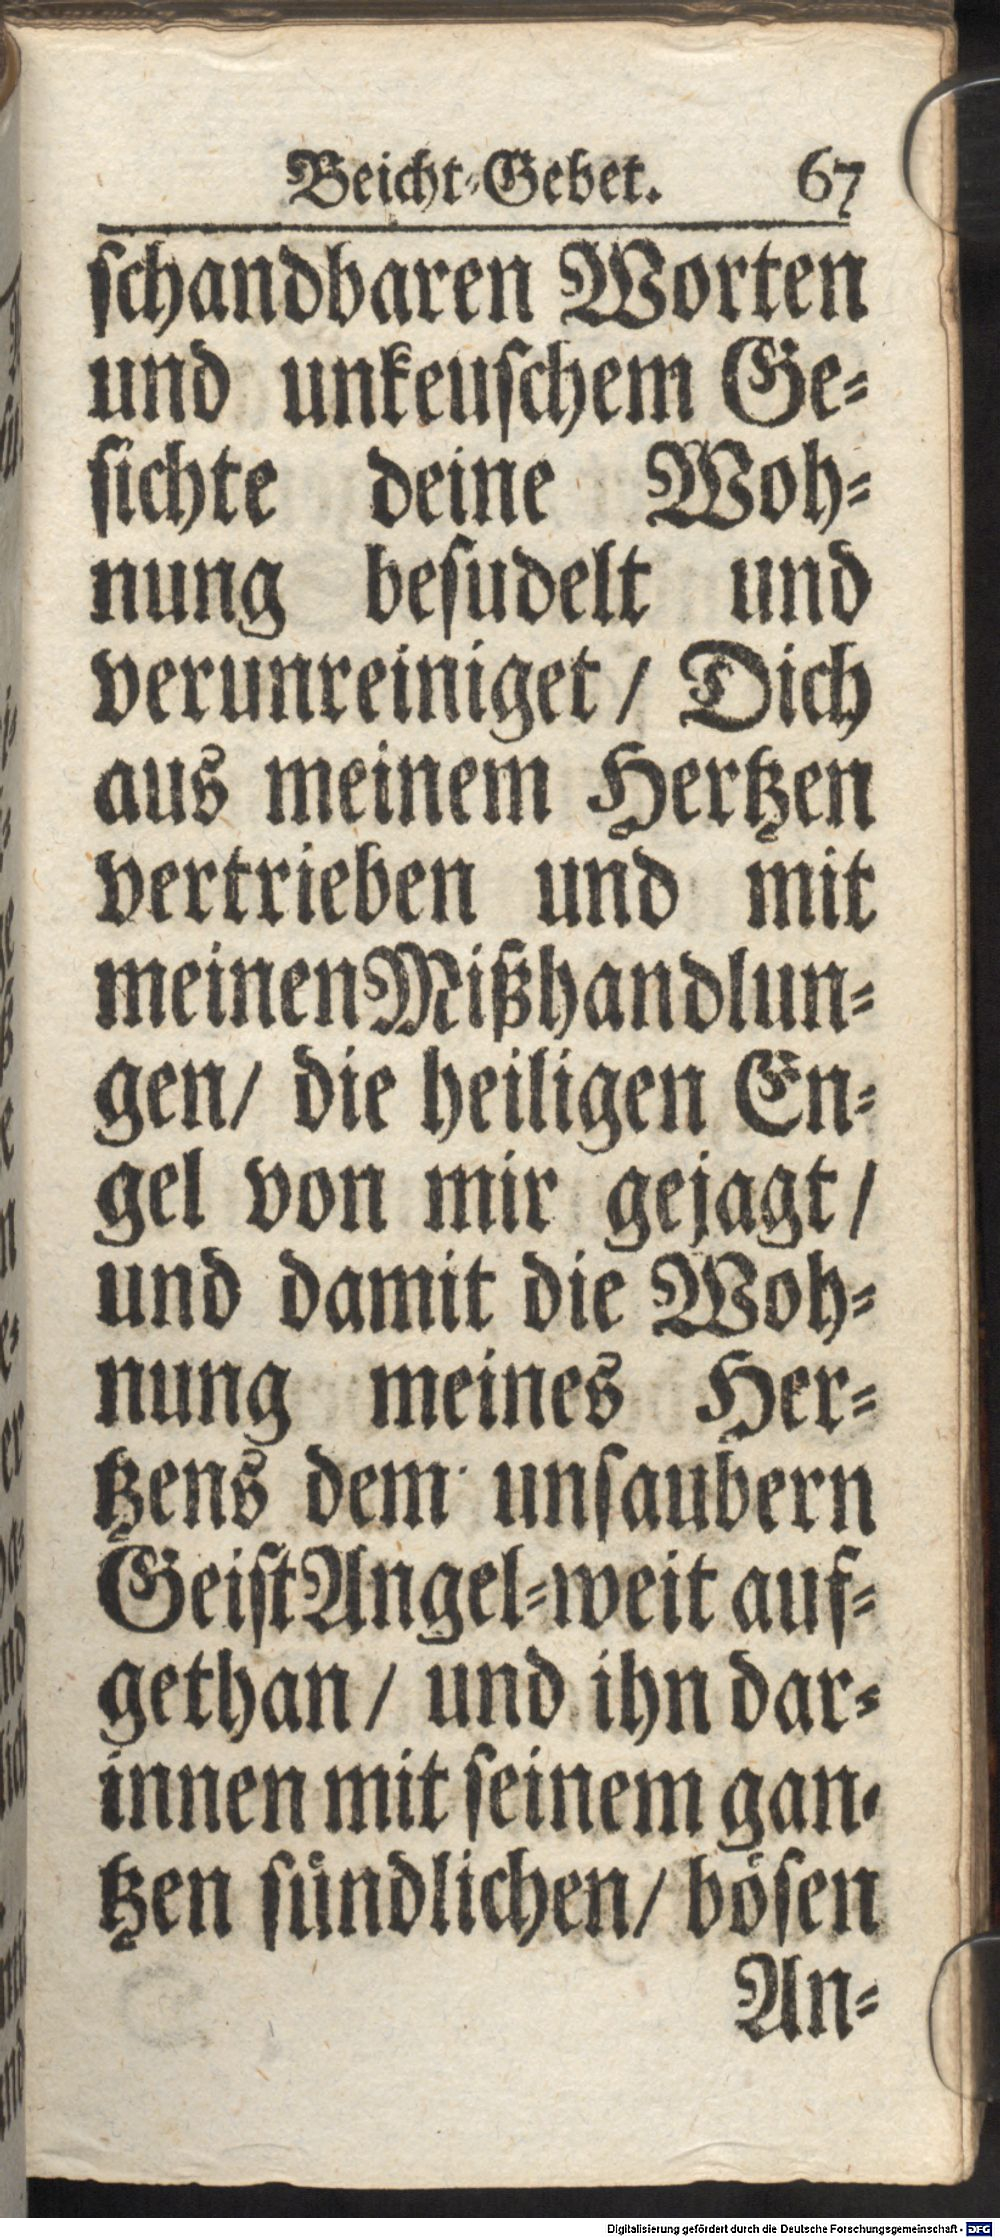 Beicht-Gebet. 67
ſchandbaren Worten
und unkeuſchem Ge-
ſichte deine Woh-
nung beſudelt und
verunreiniget / Dich
aus meinem Hertzen
vertrieben und mit
meinen Mißhandlun-
gen / die heiligen En-
gel von mir gejagt /
und damit die Woh-
nung meines Her-
tzens dem unſaubern
Geiſt Angel-weit auf-
gethan / und ihn dar-
innen mit ſeinem gan-
tzen ſuͤndlichen / boͤſen
An-
Digitalisierung gefördert durch die Deutsche Forschungsgemeinschaft - DFG